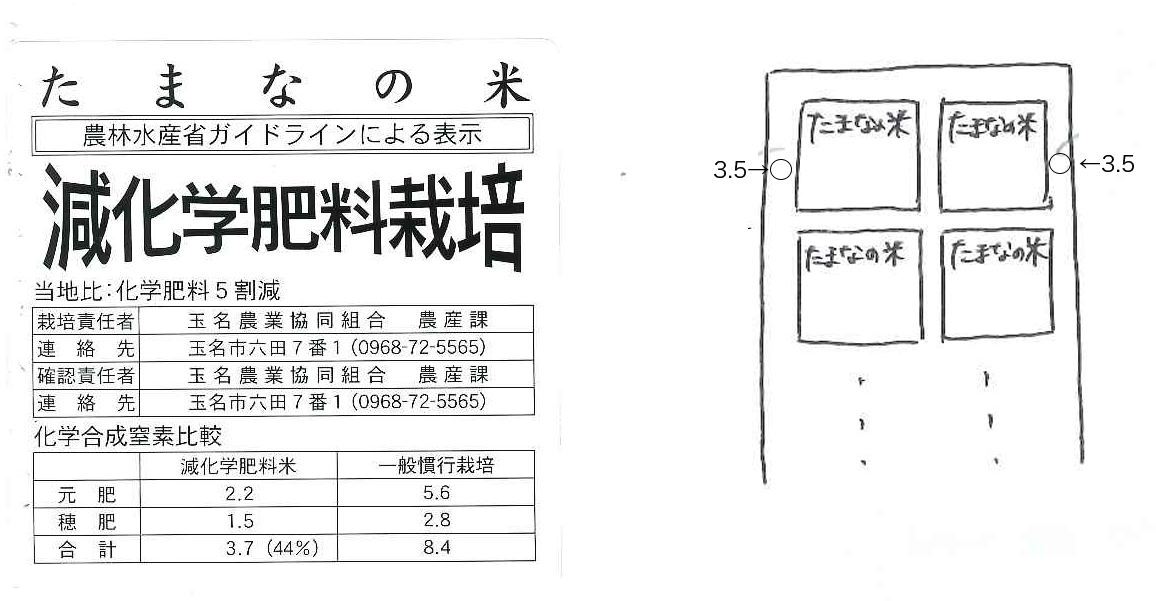 たまなの米
農林水産省ガイドラインによる表示
減化学肥料栽培
当地比：化学肥料５割減
栽培責任者 玉名農業協同組合 農産課
連絡先 玉名市六田７番１(0968-72-5565)
確認責任者 玉名農業協同組合 農産課
連絡先 玉名市六田７番１(0968-72-5565)
化学合成窒素比較
減化学肥料米 一般慣行栽培
元肥 2.2 5.6
穂肥 1.5 2.8
合計 3.7（44％） 8.4
たまなの米 たまなの米
3.5→○ ○←3.5
たまなの米 たまなの米